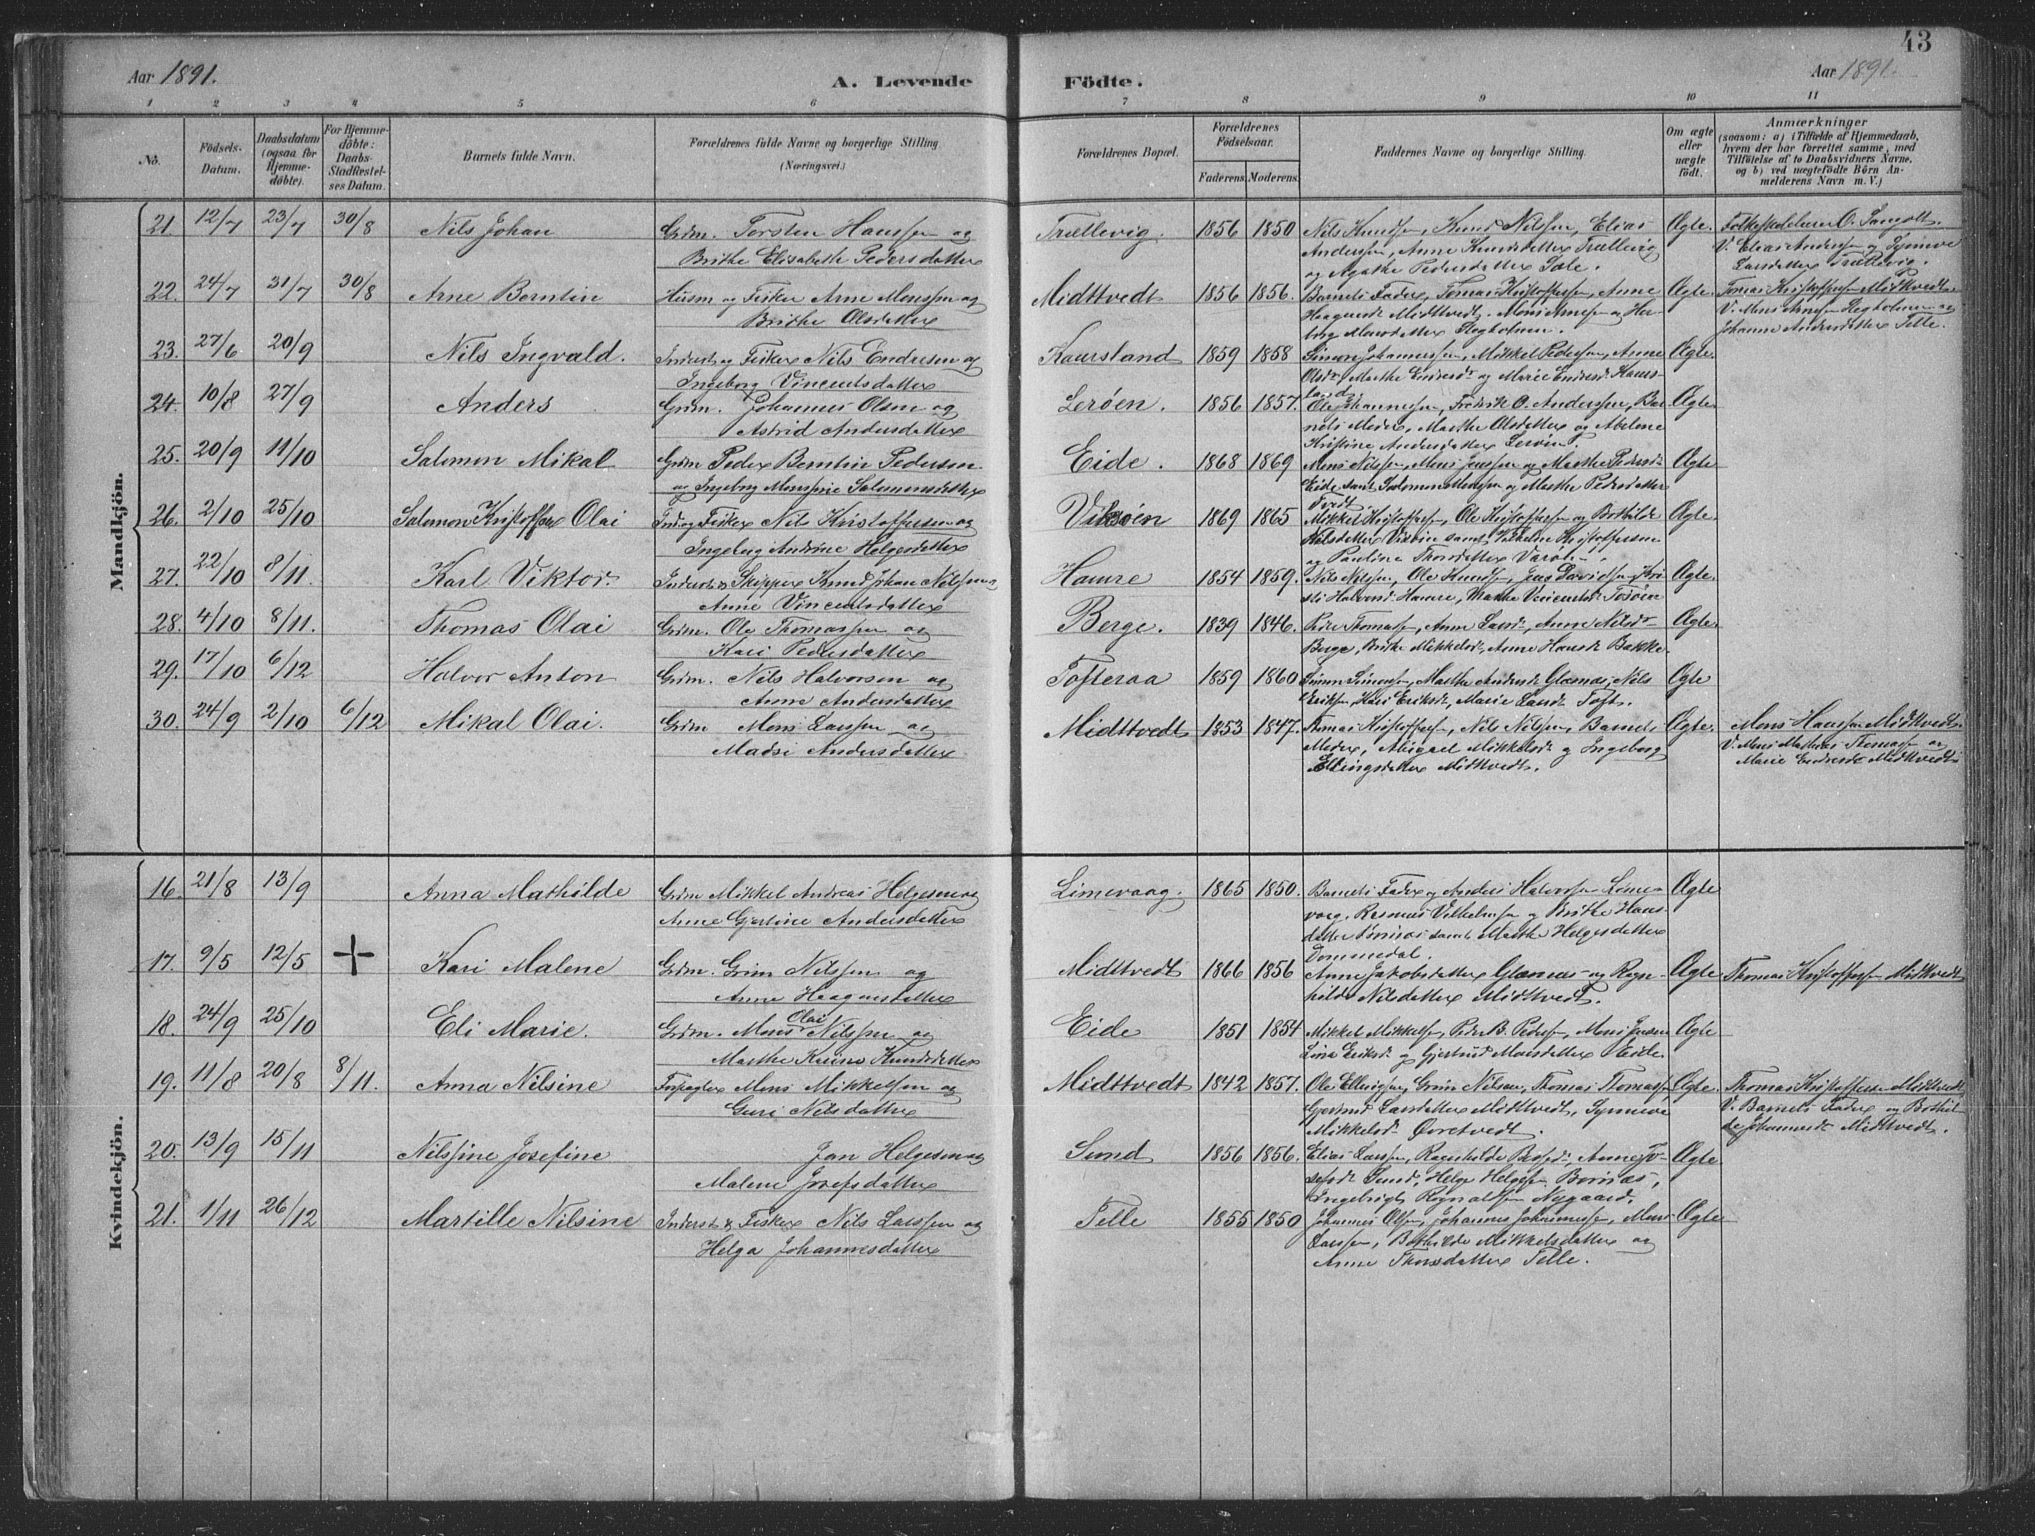 43
Aar 1891.
A. Levende Födte.
Aar 1891.
1 2 3 4 5 6 7 8 9 10 11
No.
Födsels-Datum.
Daabsdatum (ogsaa for Hjemme-döbte).
For Hjemme-döbte: Daabs-Stadfæstel-ses Datum.
Barnets fulde Navn.
Forældrenes fulde Navne og borgerlige Stilling (Næringsvei.)
Forældrenes Bopæl.
Forældrenes Födselsaar.
Faderens. Moderens.
Faddernes Navne og borgerlige Stilling.
Om ægte eller uægte födt.
Anmærkninger
(saasom: a) i Tilfælde af Hjemmedaab,
hvem der har forrettet samme, med
Tilföielse af to Daabsvidners Navne,
og b) ved uægtefödte Börn An-
melderens Navn m. V.)
Mandkjön.
21. 12/7 23/7 30/8 Nils Johan Grdm. Torsten Hansen og Trællevig. 1856 1850 Nils Knudsen, Knud Nilsen, Elias Ægte. Folkeskolelærer O.
Brithe Elisabeth Pedersdatter Andersen, Anne Knudsdatter Trællevig V. Elias Andersen og Synneve
og Agathe Pedersdatter Sæle. Larsdatter Trællevig.
22. 24/7 31/7 30/8 Arne Berntin Husm og Fisker Arne Monssen og Midttvedt 1856 1856. Barnets Fader, Tomas Kristoffersen, Anne Ægte. Tomas Kristoffersen Midttvedt
Brithe Olsdatter Haagensdr Midttvedt. Mons Arnesen og Her- V. Mons Arnesen og
borg Monsdatter Johanne Andersdatter Telle.
23. 27/6 20/9 Nils Ingvald. Inderst og Fisker Nils Endersen og Kaursland 1859 1858 Simon Johannessen, Mikkel Pedersen, Anne Ægte.
Ingeborg Vincentsdatter Olsdr, Marthe Endersdr og Marie Endersdr Kaurs-
land.
24. 10/8 27/9 Anders Grdm. Johannes Olsen og Lerøen. 1856 1857. Ole Johannessen, Fredrik O. Andersen, Bar- Ægte
Astrid Andersdatter nets Moder, Marthe Olsdatter og Abelone
Kristine Andersdatter Lerøen.
25. 20/9 11/10 Salomon Mikal Grdm Peder Berntin Pedersen Eide. 1868 1869 Mons Nilsen, Mons Jensen og Marthe Pedersdr Ægte
og Ingeborg Monssine Salomonsdatter Eide samt Salomon Monsen og Marthe Pedersdatter
26. 2/10 25/10 Salomon Kristoffer Olai Ind og Fisker Nils Kristoffersen og Viksøen 1869 1865 Mikkel Kristoffersen, Ole Kristoffersen og Bothilde Ægte.
Ingeborg Andrine Helgesdatter Nilsdatter Viksøen samt Vilhelm Kristoffersen
og Pauline Thorsdatter
27. 22/10 8/11. Karl Viktor Inderst & Skipper Knud Johan Nilsen og Hamre 1854 1859. Nils Nilsen, Ole Knudsen, Jens Davidsen, Kri- Ægte.
Anne Vincentsdatter sti Halvorsd Hamre, Marthe Vincentsdr Tosøen
28. 4/10 8/11. Thomas Olai Grdm. Ole Thomassen og Berge. 1839 1846. Peder Thomassen, Anne Larsdr, Anne Nilsdr Ægte.
Kari Pedersdatter Berge, Brithe Mikkelsdr, Anne Hansdr Bakke.
29. 17/10 6/12 Halvor Anton Grdm. Nils Halvorsen og Tofteraa 1859 1860 Simon Simonsen, Marthe Andersdr Glæsnæs, Nils Ægte
Anne Andersdatter Eriksen, Kari Eriksdr, Marie Larsdr Toft.
30. 24/9 2/10 6/12 Mikal Olai. Grdm Mons Larssen og Midttvedt 1853 1847. Tomas Kristoffersen, Nils Nilsen, Barnets Ægte. Mons Hanssen Midttvedt
Madsi Andersdatter Moder, Abigael Mikkelsdr og Ingeborg V. Mons Mathias Thomassen og
Ellingsdatter Midttvedt. Marie Endersdr Midttvedt
Kvindekjön.
16. 21/8 13/9 Anna Mathilde Grdm Mikkel Andreas Helgesen og Limevaag. 1865 1850. Barnets Fader og Anders Halvorsen Lime- Ægte
Anne Gjertine Andersdatter vaag, Rasmus Vilhelmsen og Brithe Hans-
datter samt Marthe Helgesdatter
Dommedal.
17. 9/5 12/5 + Kari Malene Grdm. Grim Nilssen og Midttvedt 1866 1856 Anne Jakobsdatter Glæsnæs og Ragn- Ægte Thomas Kristoffersen Midttvedt
Anne Haagensdatter hilde Nilsdatter Midttvedt.
18. 24/9 25/10 Eli Marie. Grdm. Mons Olai Nilssen og Eide 1851 1854 Mikkel Mikkelsen, Peder B. Pedersen, Mons Jensen Ægte
Marthe Karine Knudsdatter Lina Eriksdr og Gjertrud Monsdatter Eide.
19. 11/8 20/8 8/11. Anna Nilsine Forpagter Mons Mikkelsen og Midttvedt 1842 1857. Ole Ellingsen, Grim Nilsen, Thomas Thomassen Ægte. Thomas Kristoffersen Midttvedt
Guri Nilsdatter Gjertrud Larsdatter Midttvedt, Synneve V. Barnets Fader og Bothil-
Mikkelsdr Øvretvedt. de Johannesdr Midttvedt.
20. 13/9 15/11 Nilssine Josefine Jan Helgesen og Sund 1856 1856. Elias Larssen, Ragnhilde Anne Jo- Ægte
Malene Josefsdatter sefsdr Sund, Helge Helgesen Børnæs,
Ingebrigt Rognaldsen Nygaard.
21. 1/11 26/12 Martille Nilsine Inderst & Fisker Nils Larssen og Telle 1855 1850 Johannes Olsen, Johannes Johannessen, Mons Ægte
Helga Johannesdatter Larssen, Bothilde Mikkelsdatter og
Anne Thorsdatter Telle.